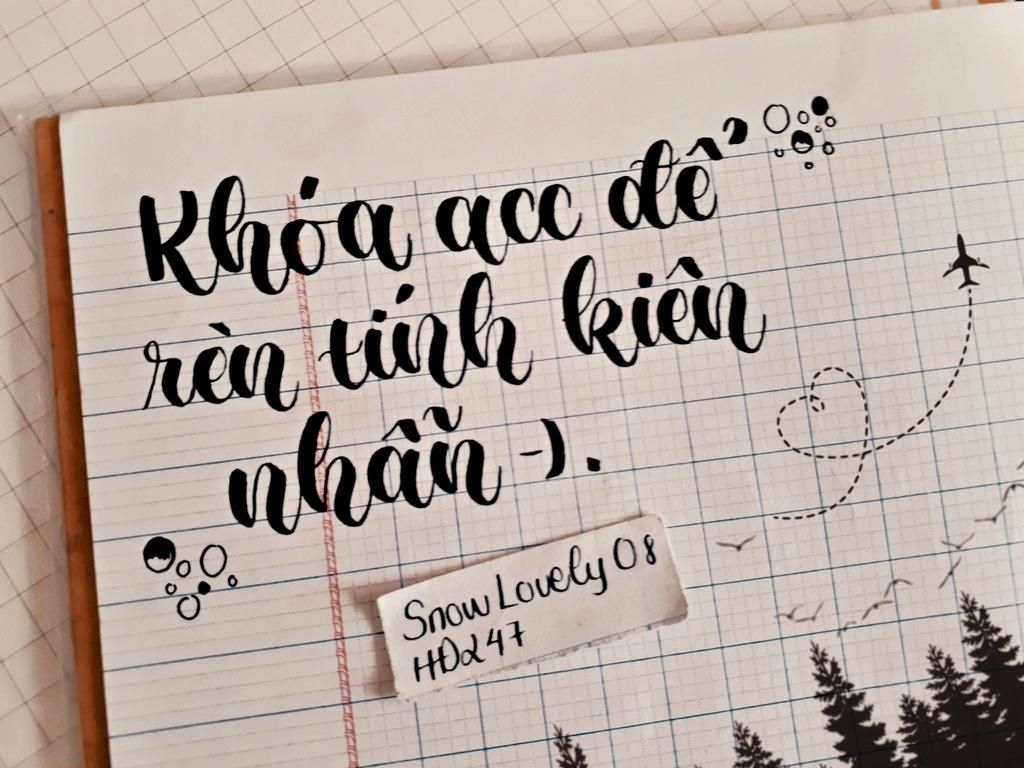 Khóa acc để
rèn tính kiên
nhẫn -).
Snow Lovely 08
HĐ247